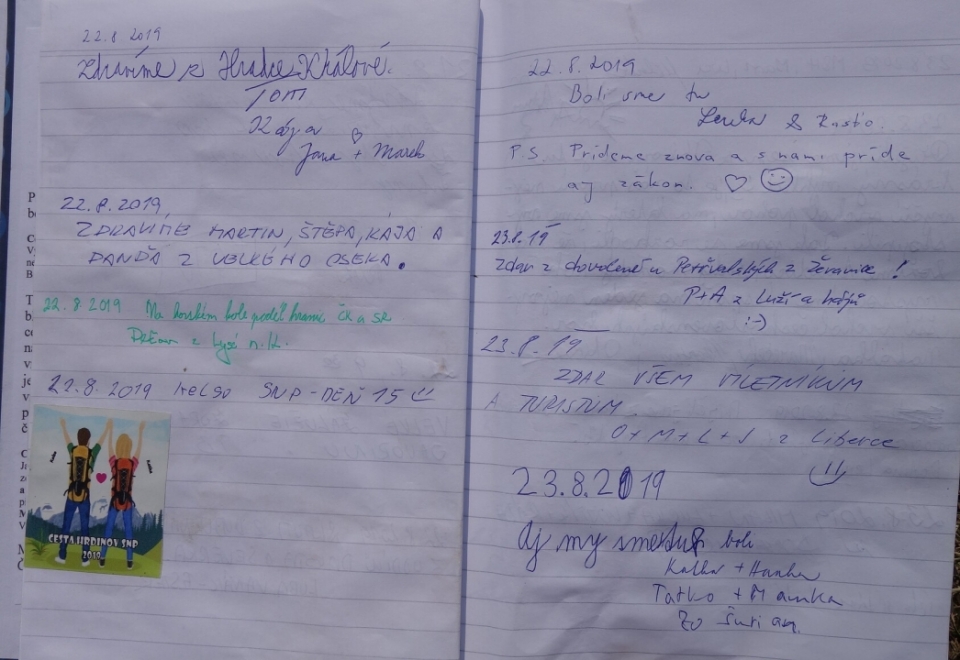 22.8 2019
Zdravíme z Hradce Králové.
TOM
Jana + Marek
22.8.2019,
ZDRAVÍME MARTIN, ŠTĚPA, KÁJA A
DANĎA Z VELKÉHO OSEKA.
22.8.2019 Na horském kole podél hranic ČR a SR
z Lysé n.L.
22.8.2019 KELSO SNP-DEŇ 15
CESTA HRDINOV SNP
2019
22.8.2019
Boli sme tu
Lenka & Rasťo.
P.S. Prídeme znova a s nami príde
aj zákon.
23.8.19
Zdar z dovolené u Petřvalských z Žeranic!
P+A z Luží a
:-)
23.8.19
ZDAR VŠEM VÝLETNÍKŮM
A TURISTŮM
O+M+L+J z Liberce
23.8.2019
Aj my sme tu boli
Katka + Hanka
Tatko + Mamka
zo Šurian.